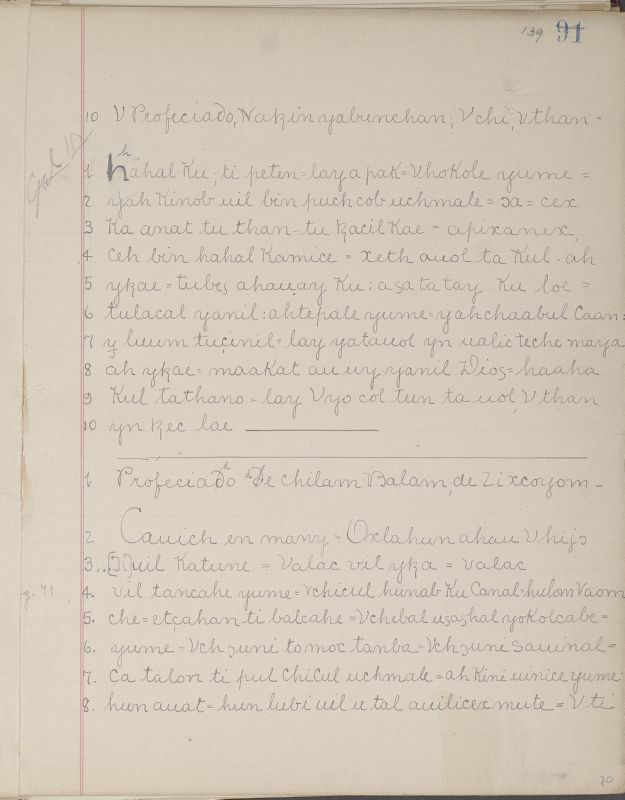 139 91
10 V Profeciado, Nakin yabunchan; V chi, V than -
1 hahal Ku; ti peten = lay a pak = Vhokole yume =
2 yah Kinob uil bin puch cob uchmale = ɔa = cex
3 Ka anat tu than - tu kacil Kae = a pixanex,
4 Ceh bin hahal Kamice = xeth auol ta Kul. ah
5 ykae = tubeş ahauçay Ku: aşa ta tay Ku loe =
6 tulacal yanil: ahtepale yume = yahchaabul Caan:
7 y luum tuçinil = lay yatauol yn ualic teche maya
8 ah ykae = maakat au uy yanil Dioş = haaha
9 Kul tathano = lay V yo col tun ta uol, V than
10 yn kec lae
1 Profeciado De chilam Balam, de Zixcoyom -
2 Cauich en many = Oxlahun ahau Vhijs
3. [Si]uil Katune = Valac vil yka = valac
p. 71
4. vil tancahe yume = vchicul hunab Ku Canal = hulom Vaom
5. che = etçahan ti balcahe = Vchebal uşaşhal yokolcabe =
6. yume = Vch ɔuni tomoc tanba = Vch ɔuni sauinal =
7. Ca talon ti pul Chicul uchmale = ah Kini uinice yume
8. hun auat = hun lubi uil u tal auilicex mute = V ti
70